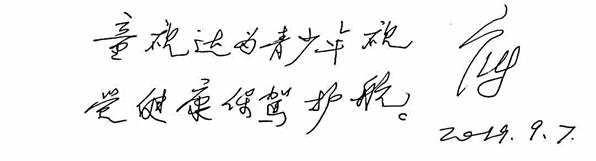 童视达为青少年视
觉健康保驾护航。
2019.9.7.